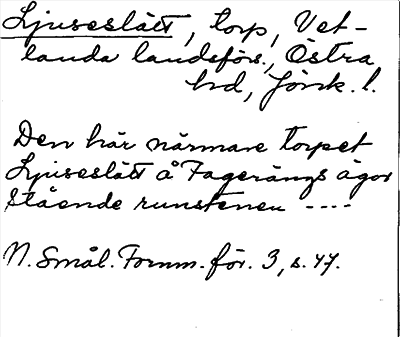 Ljuseslätt, torp, Vet-
landa landsförs., Östra
hd, Jönk. l.
Den här närmare torpet
Ljuseslätt å Fagerängs ägor
stående runstenen ----
N. Smål. Fornm. för. 3, s. 47.